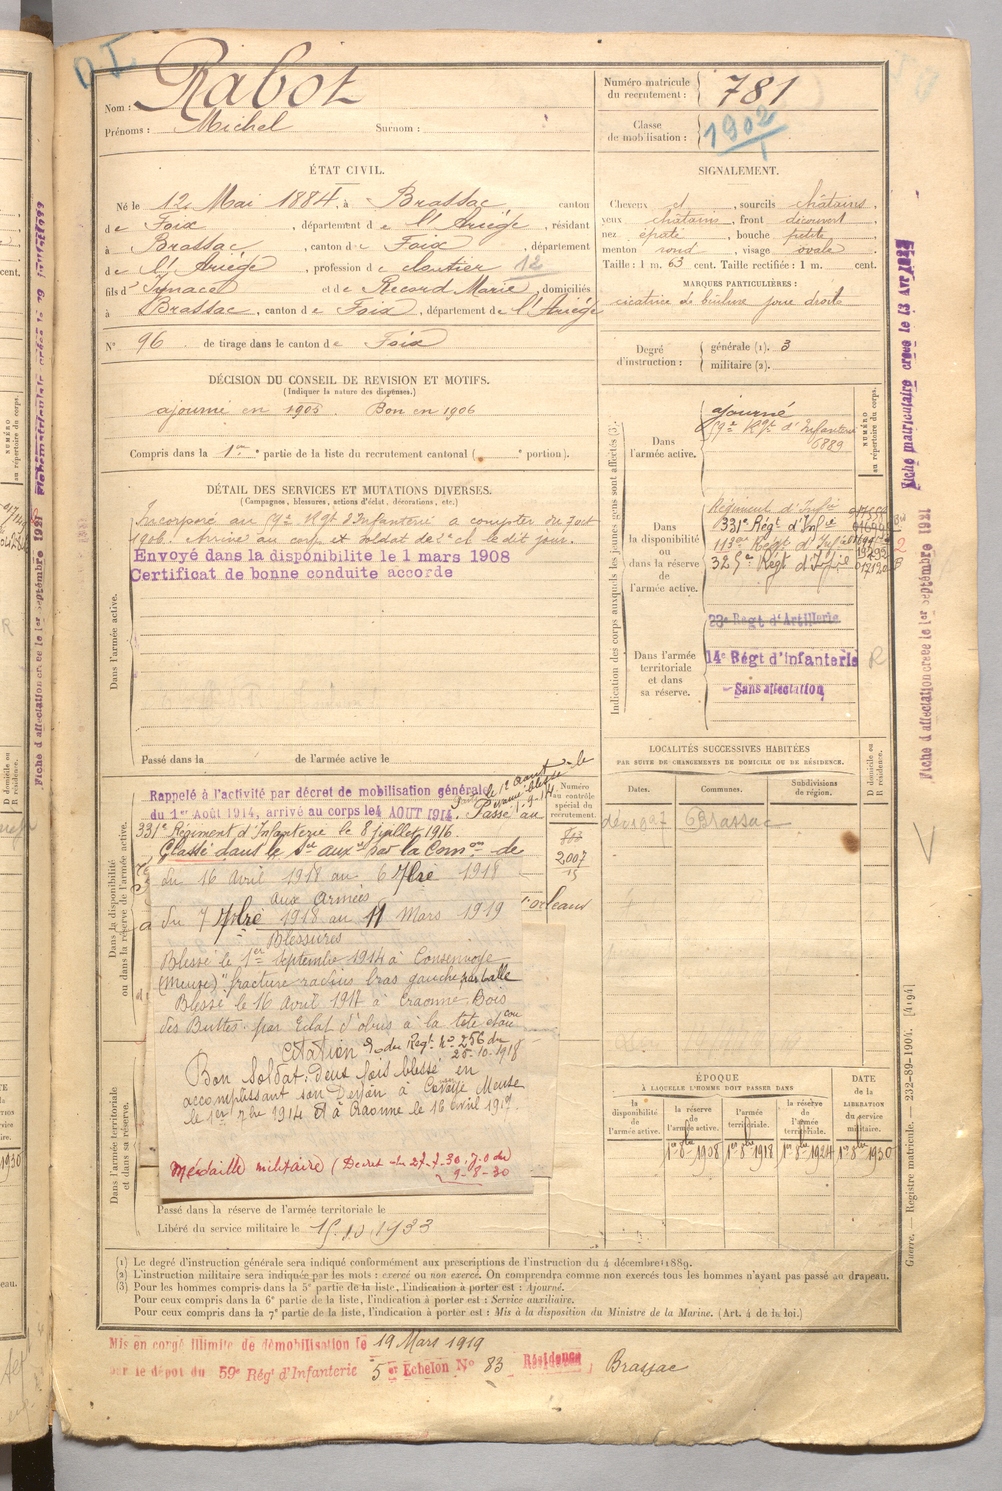 Nom : Rabot
Prénoms : Michel Surnom :
Numéro matricule du recrutement : 781
Classe de mobilisation : 1902
ÉTAT CIVIL.
Né le 12 Mai 1884, à Brassac canton
de Foix, département de l'Ariège, résidant
à Brassac, canton de Foix, département
de l'Ariège, profession de cloutier 12
fils d' Ignace et de Record Marie, domiciliés
à Brassac, canton de Foix, département de l'Ariège
N° 96 de tirage dans le canton de Foix
SIGNALEMENT.
Cheveux et, sourcils châtains,
yeux châtains, front découvert,
nez épaté, bouche petite,
menton rond, visage ovale
Taille : 1 m. 63 cent. Taille rectifiée : 1 m. cent.
MARQUES PARTICULIÈRES :
cicatrice de brûlure joue droite
Degré d'instruction : générale (1). 3
militaire (2).
DÉCISION DU CONSEIL DE REVISION ET MOTIFS.
(Indiquer la nature des dispenses.)
ajourné en 1905. Bon en 1906
Compris dans la 1re partie de la liste du recrutement cantonal ( e portion).
DÉTAIL DES SERVICES ET MUTATIONS DIVERSES.
(Campagnes, blessures, actions d'éclat, décorations, etc.)
Incorporé au Rgt d'Infanterie a compter du 7 oct
1906. Arrivé au corps et soldat de 2e cl le dit jour.
Envoyé dans la disponibilite le 1 mars 1908
Certificat de bonne conduite accorde
Dans l'armée active.
Passé dans la de l'armée active le
Indication des corps auxquels les jeunes gens sont affectés (3).
NUMÉRO au répertoire du corps.
Dans l'armée active.
ajourné
Rgt d'Infanterie
6889
Dans la disponibilité ou dans la réserve de l'armée active.
Régiment d'Infie
331e Régt d'Infie
113e Régt d'Infie
325e Régt d'Infie
Dans l'armée territoriale et dans sa réserve.
23e Régt d'Artillerie
14e Régt d'infanterie R
Sans affectation
LOCALITÉS SUCCESSIVES HABITÉES
PAR SUITE DE CHANGEMENTS DE DOMICILE OU DE RÉSIDENCE.
Dates. Communes. Subdivisions de région. D domicile ou R résidence.
Brassac
Dans la disponibilité ou dans la réserve de l'armée active.
Numéro au contrôle spécial du recrutement.
2007
Rappelé à l'activité par décret de mobilisation générale
du 1er Août 1914, arrivé au corps le 4 AOUT 1914. Passé au
331e Régiment d'Infanterie le 8 juillet 1916.
Classé dans le par la Comon de
du 16 Avril 1918 au 6 7bre 1918
aux Armées
du 7 7bre 1918 au 11 Mars 1919
Blessures
Blessé le 1er Septembre 1914 à Consenvoye
(Meuse) "fracture radius bras gauche par balle
Blessé le 16 Avril 1917 à Craonne Bois
des Buttes par Eclat d'obus à la tête et au cou
Citation O. du Régt No 256 du
25-10-1918
Bon Soldat; deux fois blessé en
accomplissant son Devoir à Meuse
le 1er 7bre 1914 et à Craonne le 16 Avril 1917.
Médaille militaire (Decret du 27-7-30. J.O du
9-8-30
Dans l'armée territoriale et dans sa réserve.
Passé dans la réserve de l'armée territoriale le
Libéré du service militaire le 15.10.1933
ÉPOQUE
À LAQUELLE L'HOMME DOIT PASSER DANS
DATE de la LIBÉRATION du service militaire.
la disponibilité de l'armée active.
la réserve de l'armée active.
l'armée territoriale.
la réserve de l'armée territoriale.
1er 8bre 1908 1er 8bre 1918 1er 8bre 1924 1er 8bre 1930
(1) Le degré d'instruction générale sera indiqué conformément aux prescriptions de l'instruction du 4 décembre 1889.
(2) L'instruction militaire sera indiquée par les mots : exercé ou non exercé. On comprendra comme non exercés tous les hommes n'ayant pas passé au drapeau.
(3) Pour les hommes compris dans la 5e partie de la liste, l'indication à porter est : Ajourné.
Pour ceux compris dans la 6e partie de la liste, l'indication à porter est : Service auxiliaire.
Pour ceux compris dans la 7e partie de la liste, l'indication à porter est : Mis à la disposition du Ministre de la Marine. (Art. 4 de la loi.)
Mis en congé illimité de démobilisation le 19 Mars 1919
par le dépot du 59e Régt d'Infanterie 5e Echelon No 83 Résidence, Brassac
Fiche matriculaire créée le 13 Avr
Fiche d'affectation créée le 1er septembre 1921
Guerre. — Registre matricule. — 232-89-1904. [4194]